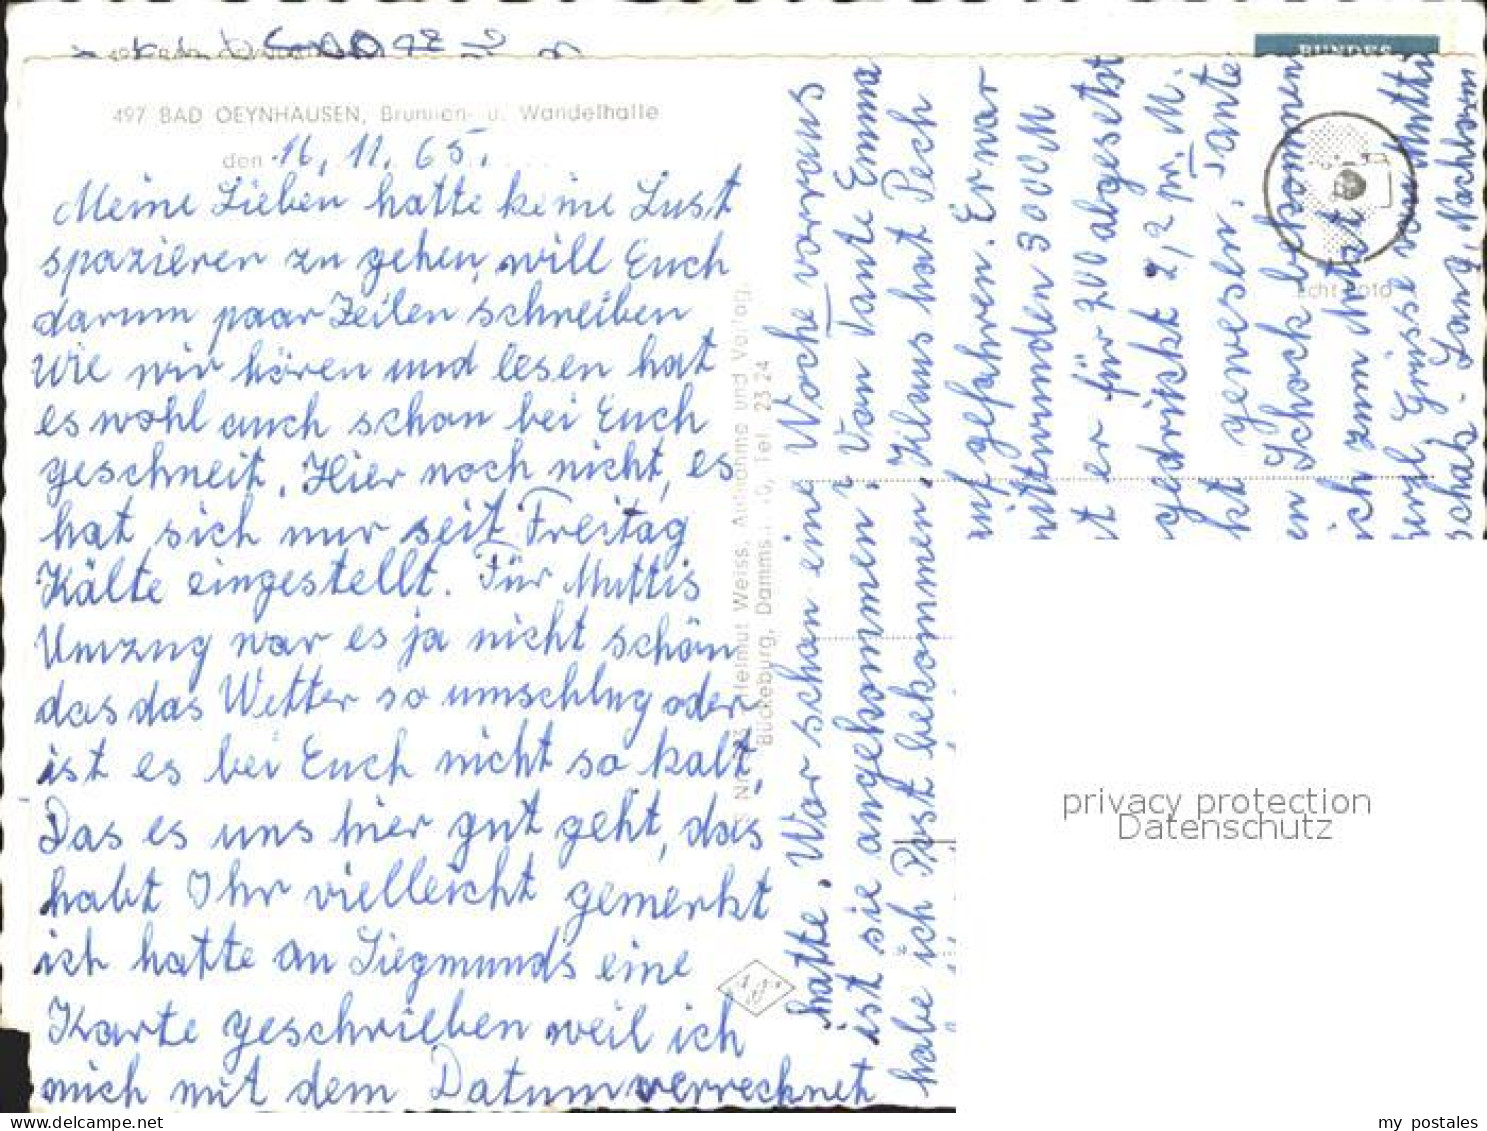 BUNDES
497 BAD OEYNHAUSEN, Brunnen- u. Wandelhalle
den 16. 11. 65.
Meine Lieben hatte keine Lust
spazieren zu gehen, will Euch
darum paar Zeilen schreiben
Wie wir hören und lesen hat
es wohl auch schon bei Euch
geschneit. Hier noch nicht, es
hat sich nur seit Freitag
Kälte eingestellt. Für Muttis
Umzug war es ja nicht schön
das das Wetter so umschlug oder
ist es bei Euch nicht so kalt,
Das es uns hier gut geht, das
habt Ihr vielleicht gemerkt
ich hatte an Siegmunds eine
Karte geschrieben weil ich
mich mit dem Datum verrechnet
hatte. War schon eine Woche vorraus
ist sie angekommen? Von Tante Emma
habe ich Post bekommen. Klaus hat Pech
auf gefahren. Er war
3000 M
er für 700 abgesetzt
gedrückt 2,2 m. M.
gewesen. Tante
Schock bekommen
ich zum Notar
herzl. Grüsse von Mutti
Nachbarn
Helmut Weiss, Aufnahme und Verlag,
Bückeburg, Damms. 10, Tel. 23 24
Echt Foto
privacy protection
Datenschutz
my postales